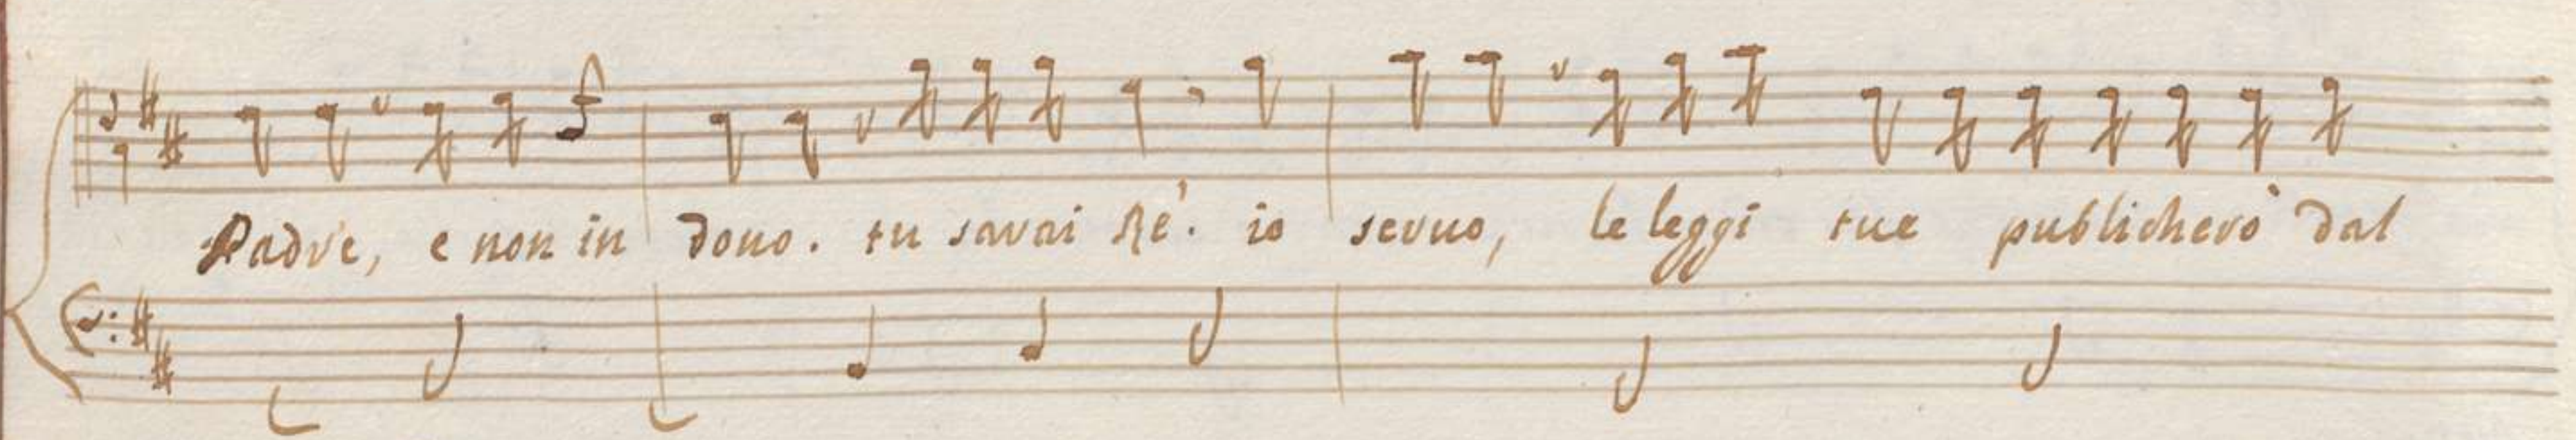 Padre, e non in dono. tu sarai Rè. io servo, le leggi tue publicherò dal